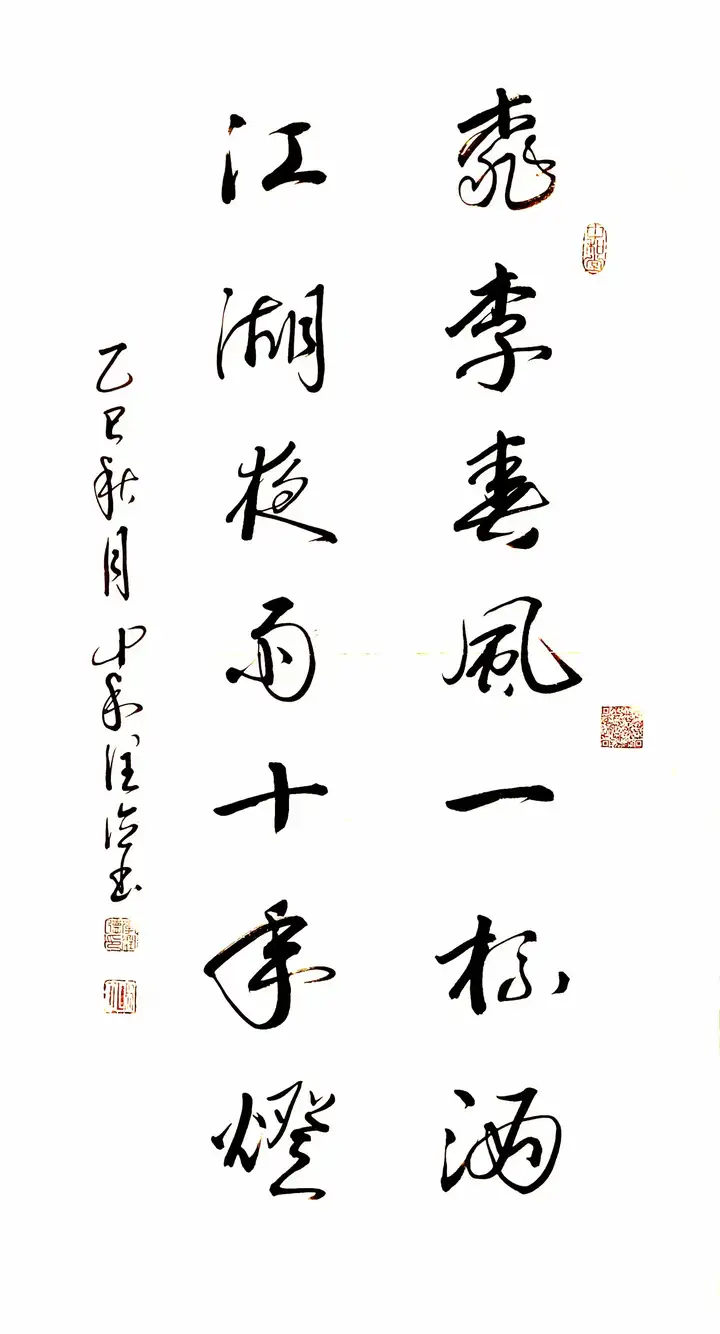 桃李春風一杯酒
江湖夜雨十年燈
乙巳秋月中和書